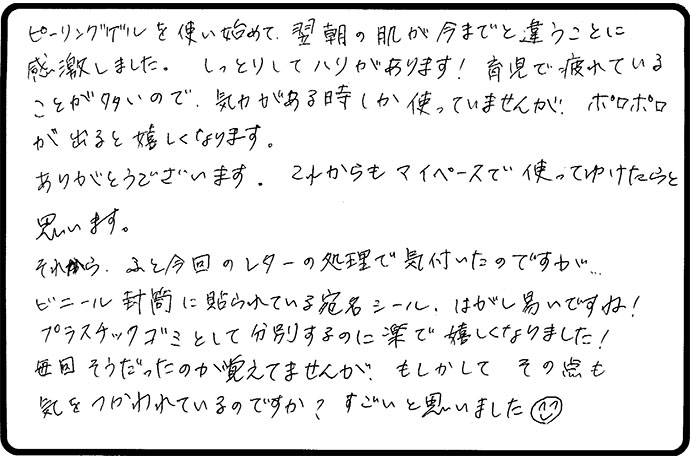 ピーリングゲルを使い始めて、翌朝の肌が今までと違うことに
感激しました。 しっとりしてハリがあります! 育児で疲れている
ことが多いので、気力がある時しか使っていませんが、ポロポロ
が出ると嬉しくなります。
ありがとうございます。 これからもマイペースで使ってゆけたらと
思います。
それから、ふと今回のレターの処理で気付いたのですが…
ビニール封筒に貼られている宛名シール、はがし易いですね!
プラスチックゴミとして分別するのに楽で嬉しくなりました!
毎回そうだったのか覚えてませんが、もしかして その点も
気をつかわれているのですか? すごいと思いました